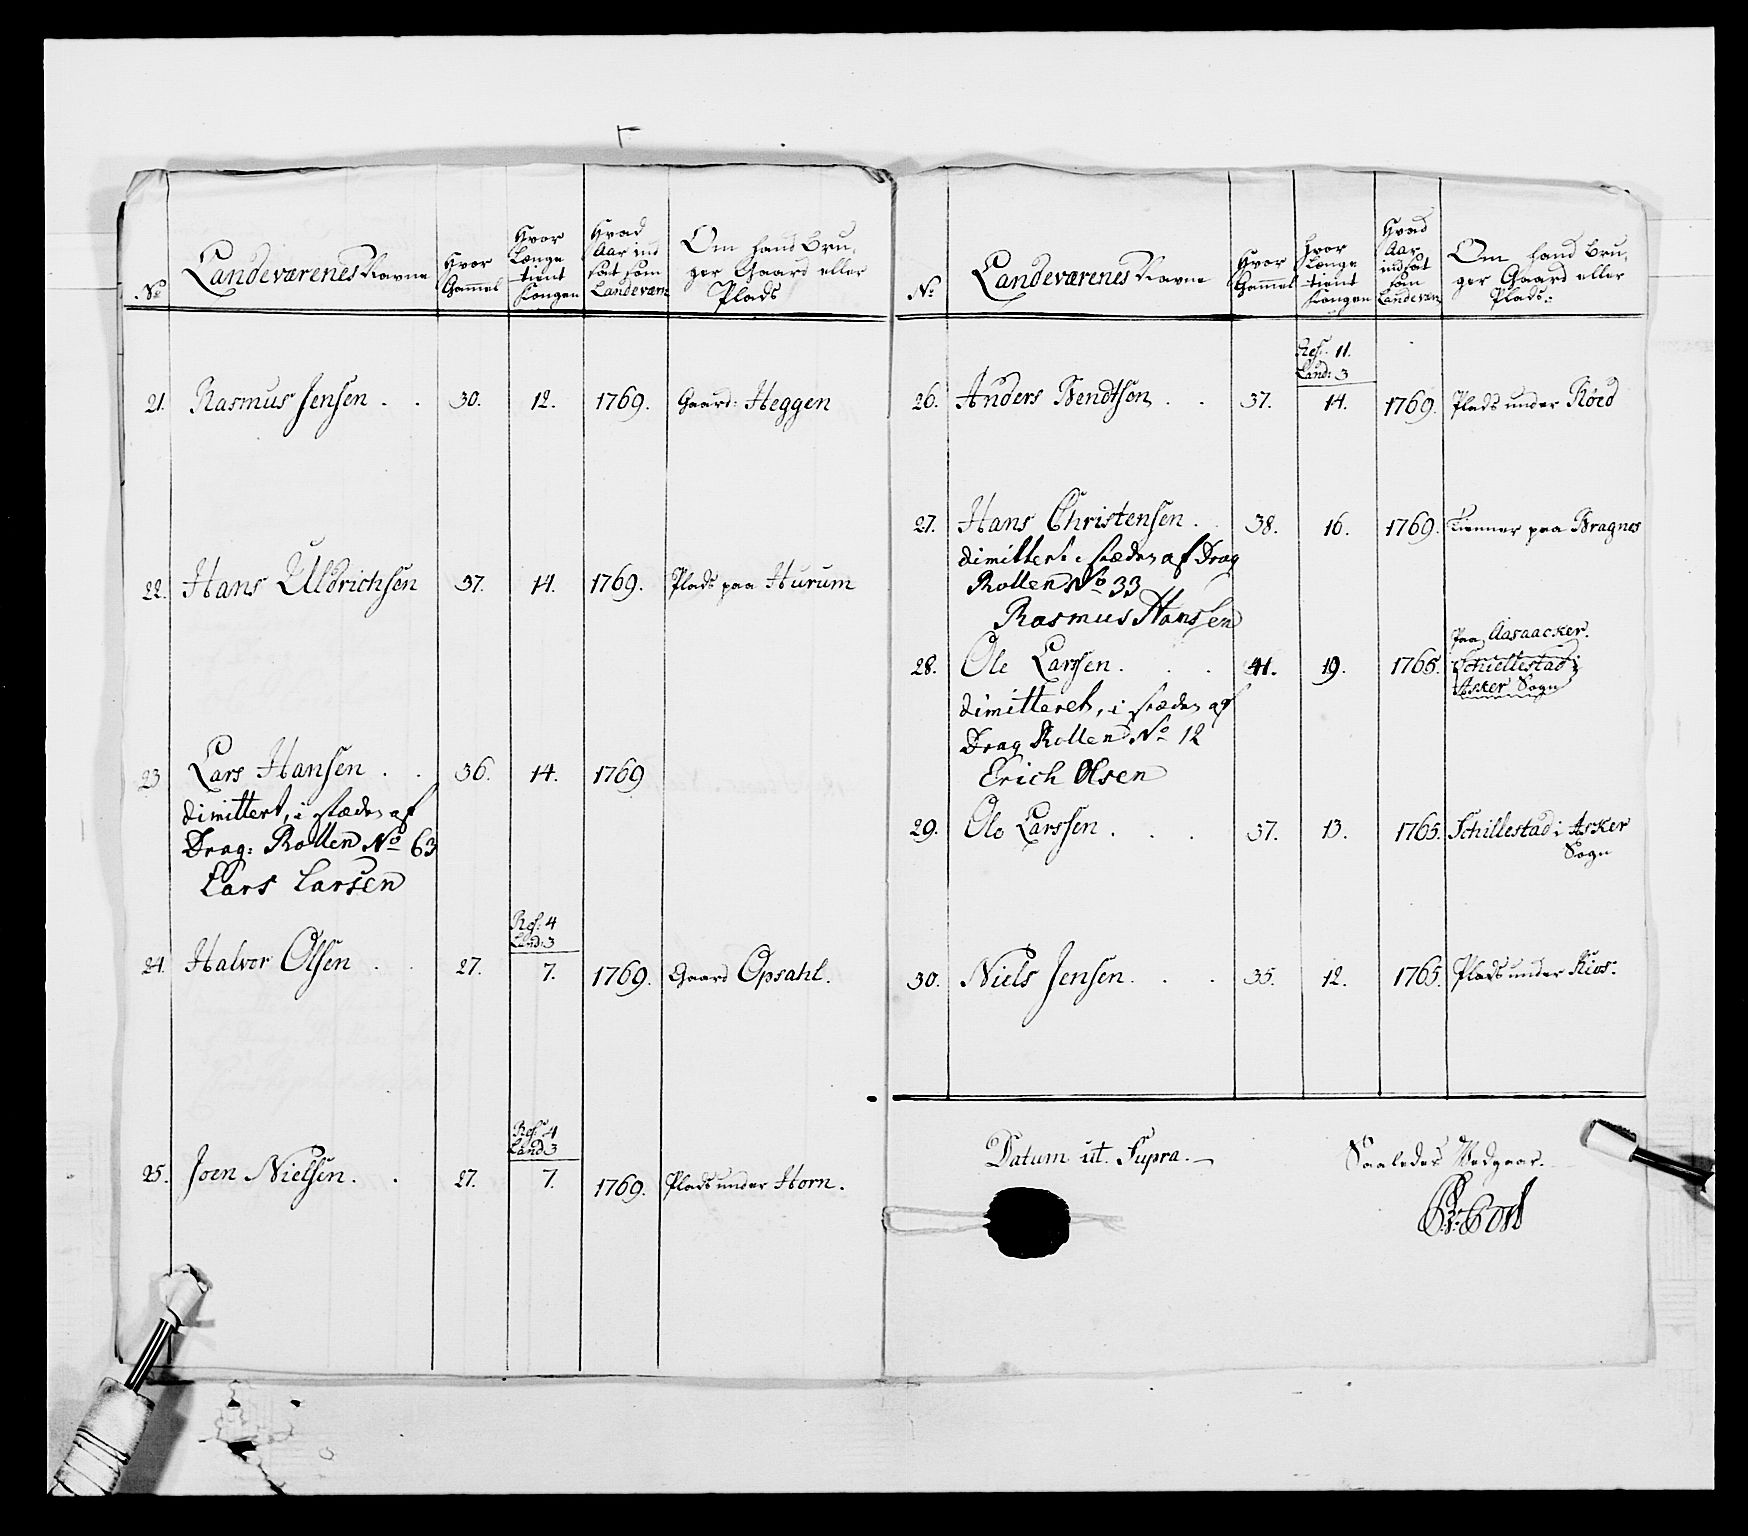 No
Landeværenes Navne
Hvor
Gammel
Hvor
Længe
tient
Kongen
Hvad
Aar ind
sat som
Landeværn
Om hand Bru,
ger Gaard eller
Plads
21. Rasmus Jensen . . 30. 12. 1769. Gaard: Heggen
22. Hans Uldrichsen 37. 14. 1769. Plads paa Hurum
23 Lars Hansen . . 36. 14. 1769
dimittert, i stæden af
Drag: Rollen No 63
Lars Larsen
Ref: 4
Land: 3
24. Halvor Olsen . . 27. 7. 1769. Gaard Opsahl.
Ref: 4
Land 3
25. Joen Nielsen . . 27. 7. 1769. Plads under Horn.
No
Landeværenes Navne
Hvor
Gammel
Hvor
Længe
tient
Kongen
Hvad
Aar
indsat
som
Landeværn
Om hand Bru,
ger Gaard eller
Plads:
Ref: 11.
Land: 3
26. Anders Bendtsen . . 37. 14. 1769. Plads under Röed
27. Hans Christensen . 38. 16. 1769. Tienner paa Bragnes
dimittert i stæden af Drag
Rollen No 33
Rasmus Hansen
Paa Aasaacker.
28. Ole Larsen . . . 41. 19. 1765. Schiellestad i
Asker Sogn
dimitteret, i stæden af
Drag Rollen No 12
Erich Olsen
29. Ole Larssen . . . 37. 13. 1765. Schillestad i Asker
Sogn
30. Niels Jensen . . . 35. 12. 1765. Plads under Kios.
Datum ut. Supra.
Saaledes Vedgaar.